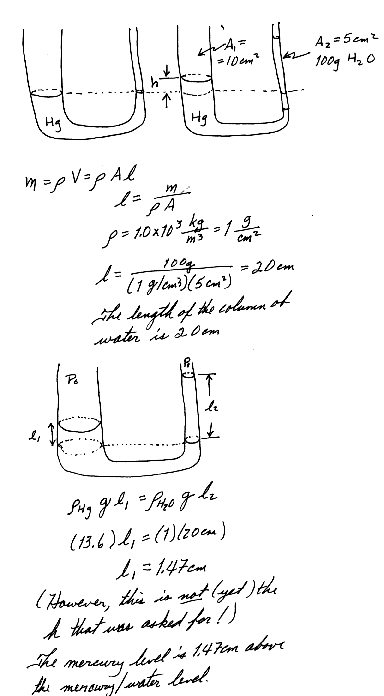 A₁ =
= 10 cm²
A₂ = 5 cm²
100g H₂O
h
Hg
Hg
m = ρV = ρAl
l = m / ρA
ρ = 1.0x10³ kg/m³ = 1 g/cm²
l = 100g / (1 g/cm³)(5 cm²) = 20 cm
The length of the column of
water is 20 cm
P₀
P₀
l₁
l₂
ρHg g l₁ = ρH₂O g l₂
(13.6) l₁ = (1)(20cm)
l₁ = 1.47cm
(However, this is not (yet) the
h that was asked for!)
The mercury level is 1.47cm above
the mercury/water level.